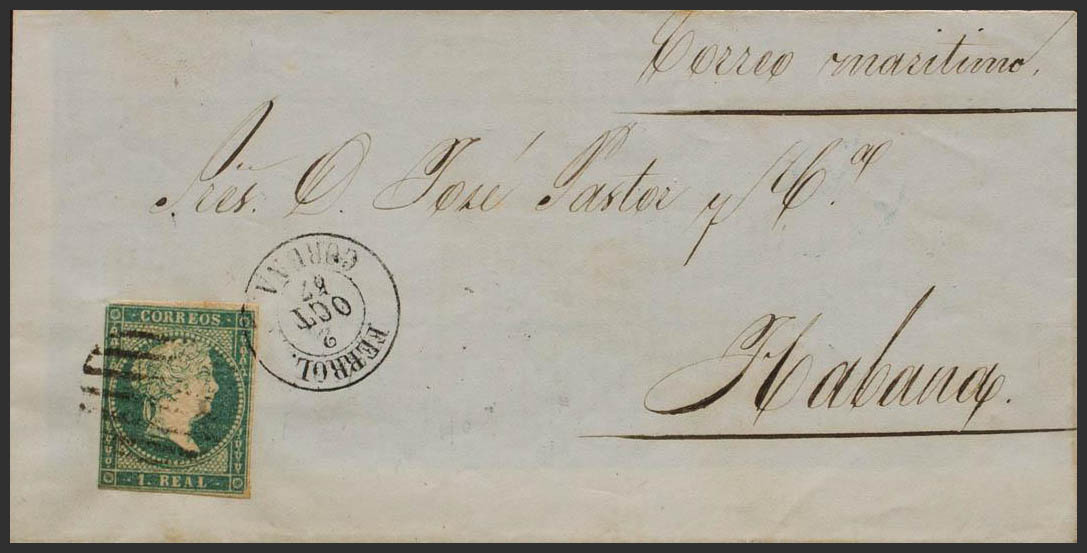 Correo maritimo.
Sres. D. José Pastor y C.ª
Habana.
CORREOS
1. REAL
FERROL.
2
OCT
57
CORUÑA